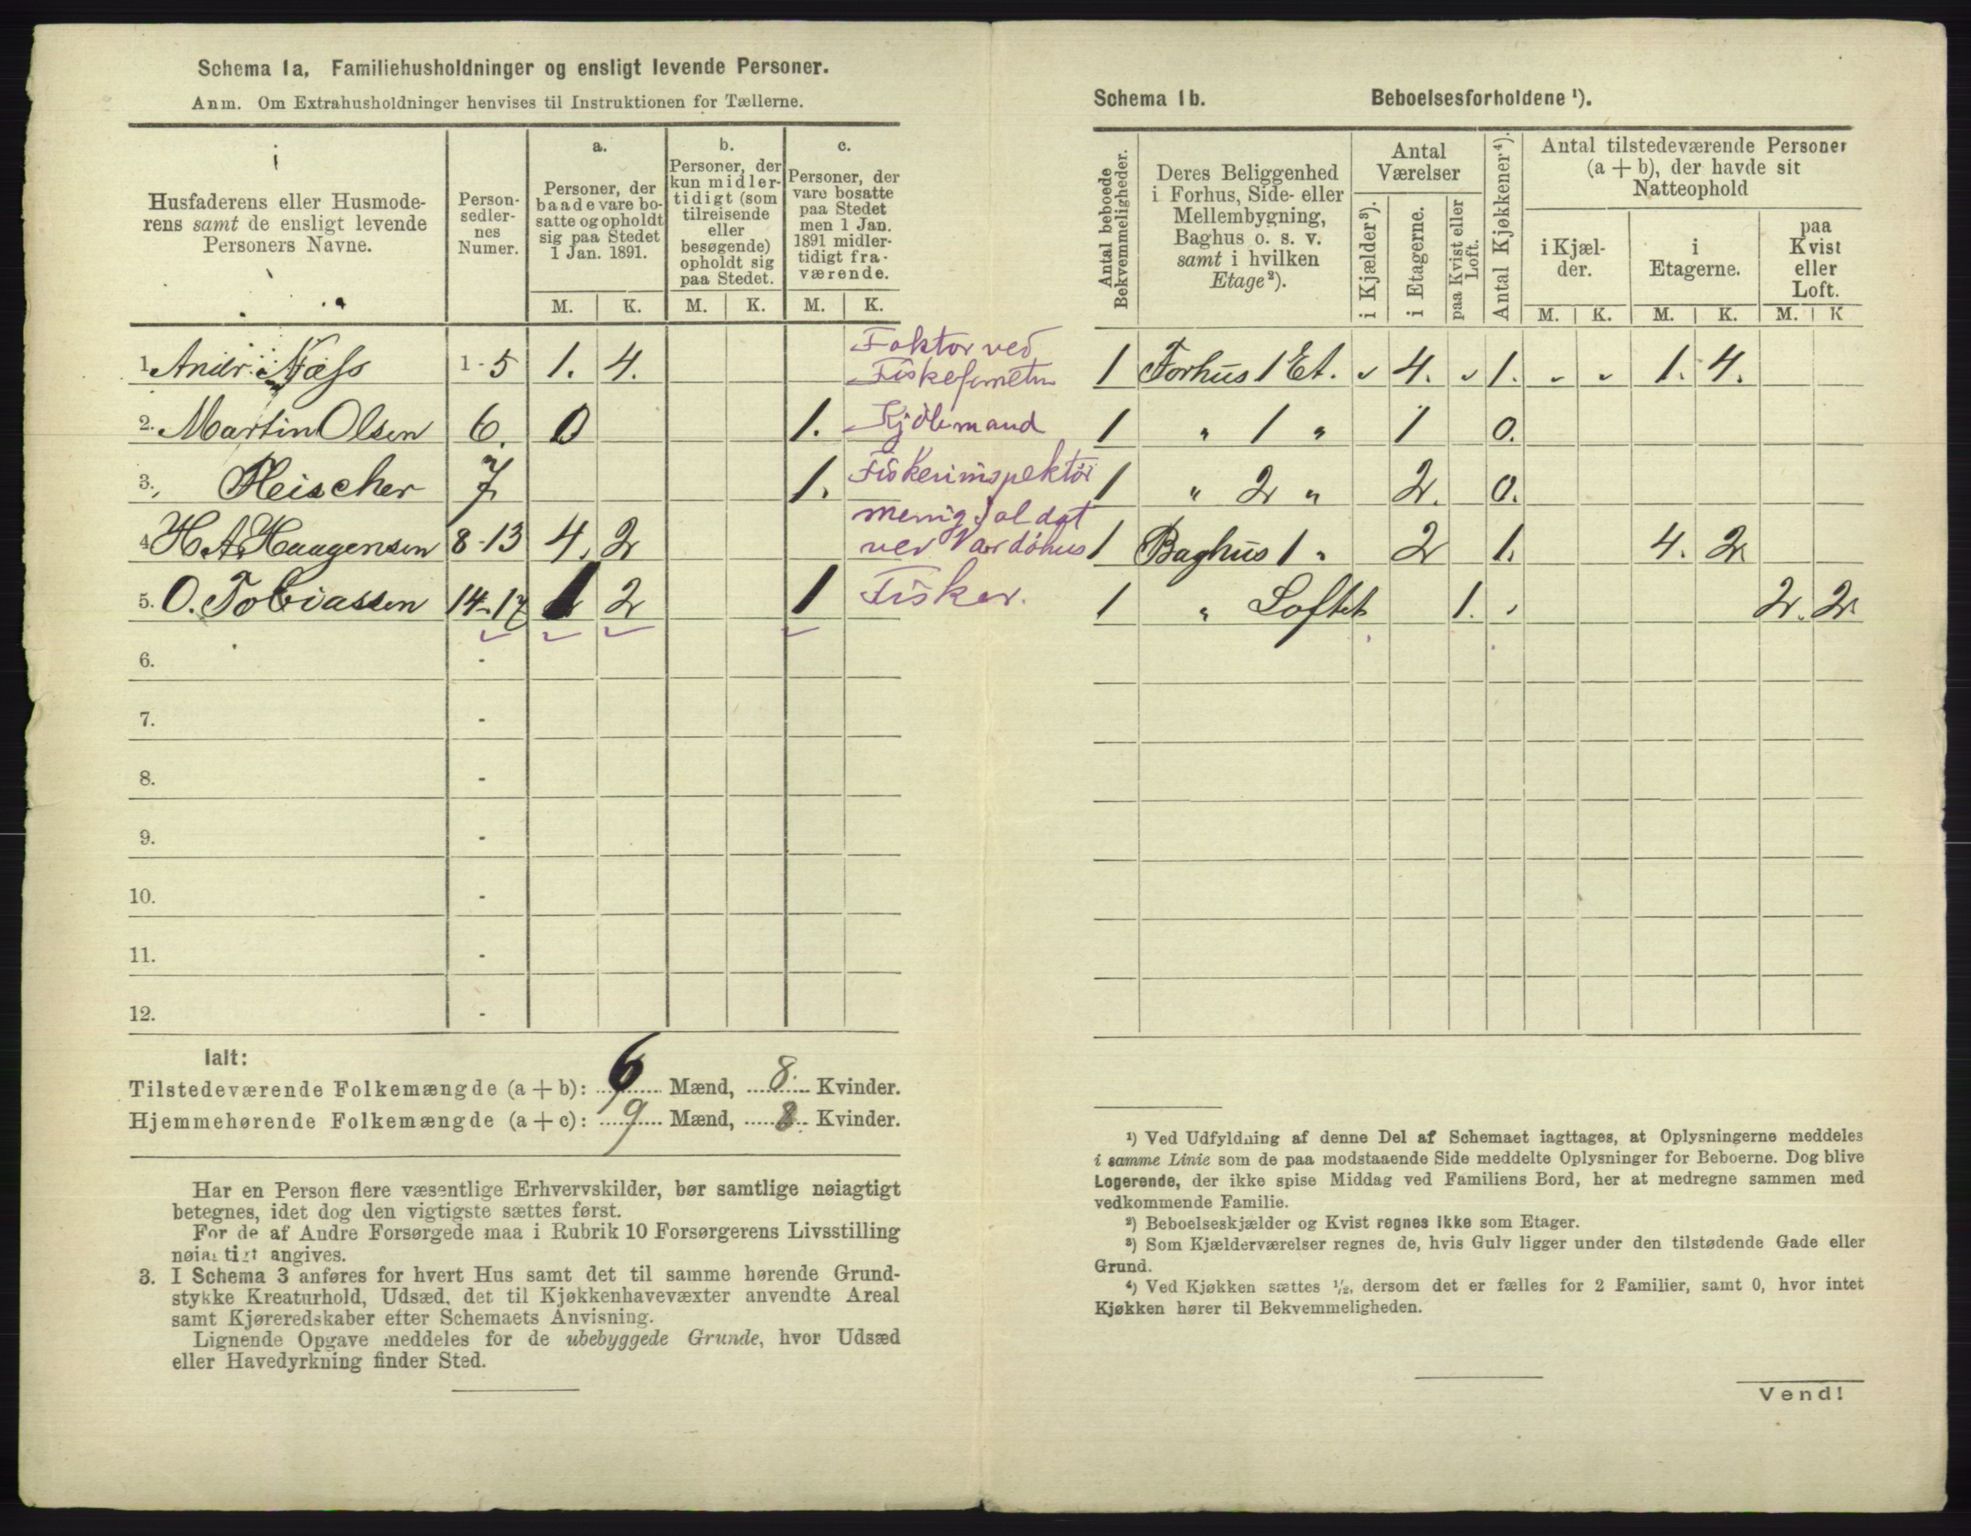 Schema 1a. Familiehusholdninger og ensligt levende Personer.
Anm. Om Extrahusholdninger henvises til Instruktionen for Tællerne.
Husfaderens eller Husmode-
rens samt de ensligt levende
Personers Navne.
Person-
sedler-
nes
Numer.
a.
Personer, der
baade vare bo-
satte og opholdt
sig paa Stedet
1 Jan. 1891.
b.
Personer, der
kun midler-
tidigt (som
tilreisende
eller
besøgende)
opholdt sig
paa Stedet.
c.
Personer, der
vare bosatte
paa Stedet
men 1 Jan.
1891 midler-
tidigt fra-
værende.
M. K. M. K. M. K.
1. Andr. Næss 1-5 1. 4. Faktor ved
2. Martin Olsen 6. 0 1. Kjölemand
3. Fleischer 7 1. Fiskeriinspektör
4. H. A. Haagensen 8-13 4. 2 menig Soldat
ved Vardöhus
5. O. Tobiassen 14-17 1 2 1 Fisker.
6. -
7. -
8. -
9. -
10. -
11. -
12. -
Ialt:
Tilstedeværende Folkemængde (a + b): 6 Mænd, 8. Kvinder.
Hjemmehørende Folkemængde (a + c): 9 Mænd, 8 Kvinder.
Har en Person flere væsentlige Erhvervskilder, bør samtlige nøiagtigt
betegnes, idet dog den vigtigste sættes først.
For de af Andre Forsørgede maa i Rubrik 10 Forsørgerens Livsstilling
nøiagtigt angives.
3. I Schema 3 anføres for hvert Hus samt det til samme hørende Grund-
stykke Kreaturhold, Udsæd, det til Kjøkkenhavevæxter anvendte Areal
samt Kjøreredskaber efter Schemaets Anvisning.
Lignende Opgave meddeles for de ubebyggede Grunde, hvor Udsæd
eller Havedyrkning finder Sted.
Schema 1b. Beboelsesforholdene ¹).
Antal beboede
Bekvemmeligheder.
Deres Beliggenhed
i Forhus, Side- eller
Mellembygning,
Baghus o. s. v.
samt i hvilken
Etage²).
Antal
Værelser
i Kjælder³).
i Etagerne.
paa Kvist eller
Loft.
Antal Kjøkkener⁴).
Antal tilstedeværende Personer
(a + b), der havde sit
Natteophold
i Kjæl-
der.
i
Etagerne.
paa
Kvist
eller
Loft.
M. K. M. K. M. K
1 Forhus 1 Et. „ 4. „ 1. „ „ 1. 4.
1 „ 1 „ 1 0.
1 „ 2 „ 2. 0.
1 Baghus 1 „ 2 1. 4. 2
1 „ Loftet 1. 2. 2.
¹) Ved Udfyldning af denne Del af Schemaet iagttages, at Oplysningerne meddeles
i samme Linie som de paa modstaaende Side meddelte Oplysninger for Beboerne. Dog blive
Logerende, der ikke spise Middag ved Familiens Bord, her at medregne sammen med
vedkommende Familie.
²) Beboelseskjælder og Kvist regnes ikke som Etager.
³) Som Kjælderværelser regnes de, hvis Gulv ligger under den tilstødende Gade eller
Grund.
⁴) Ved Kjøkken sættes ½, dersom det er fælles for 2 Familier, samt 0, hvor intet
Kjøkken hører til Bekvemmeligheden.
Vend!